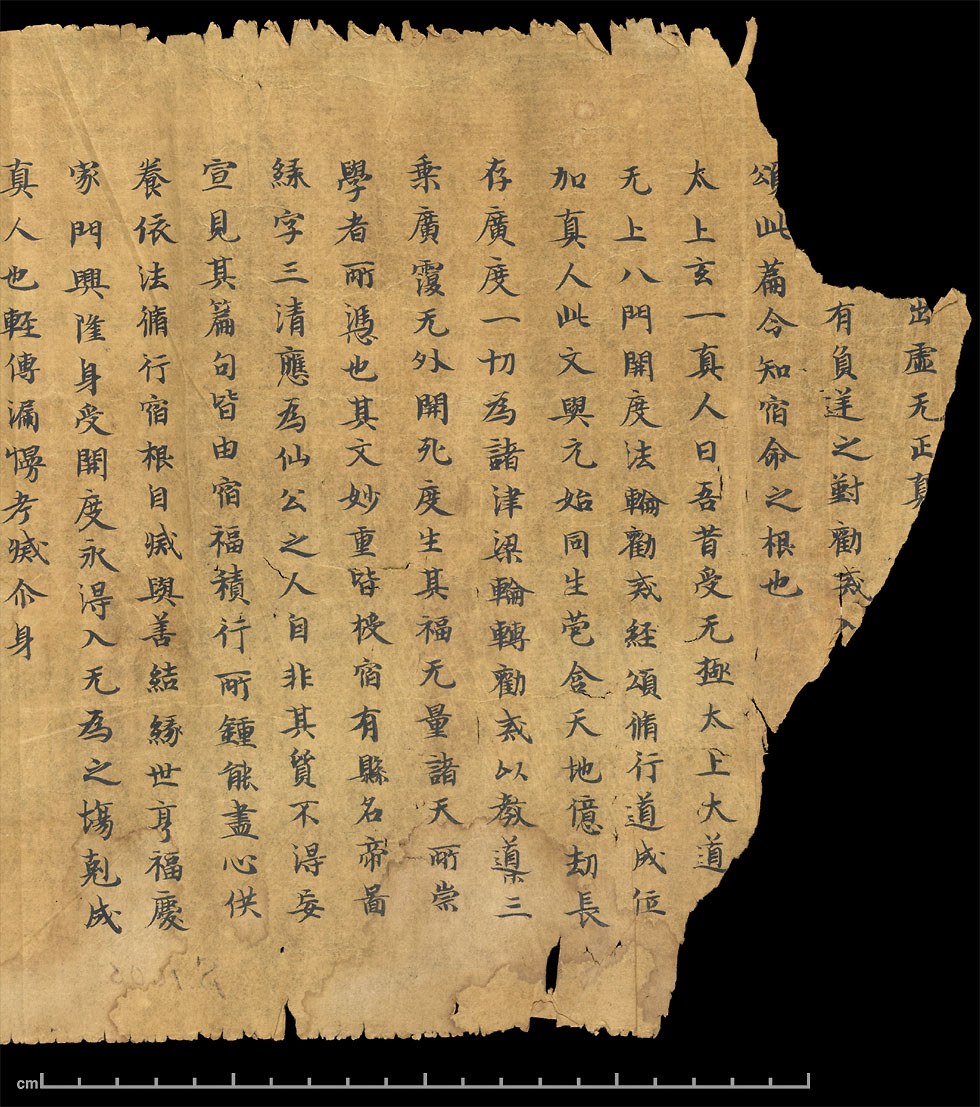 出虛无正真
有負逆之對勸戒
頌此篇令知宿命之根也
太上玄一真人曰吾昔受无極太上大道
无上八門開度法輪勸戒經頌脩行道成位
加真人此文與元始同生苞含天地億劫長
存廣度一切為諸津梁輪轉勸戒以教導三
乗廣覆无外開死度生其福无量諸天所崇
學者所憑也其文妙重皆授宿有縣名帝啚
緑字三清應為仙公之人自非其質不得妄
宣見其篇句皆由宿福積行所鍾能盡心供
養依法脩行宿根自滅與善結縁世享福慶
家門興隆身受開度永得入无為之場剋成
真人也輊傳漏慢考滅尒身